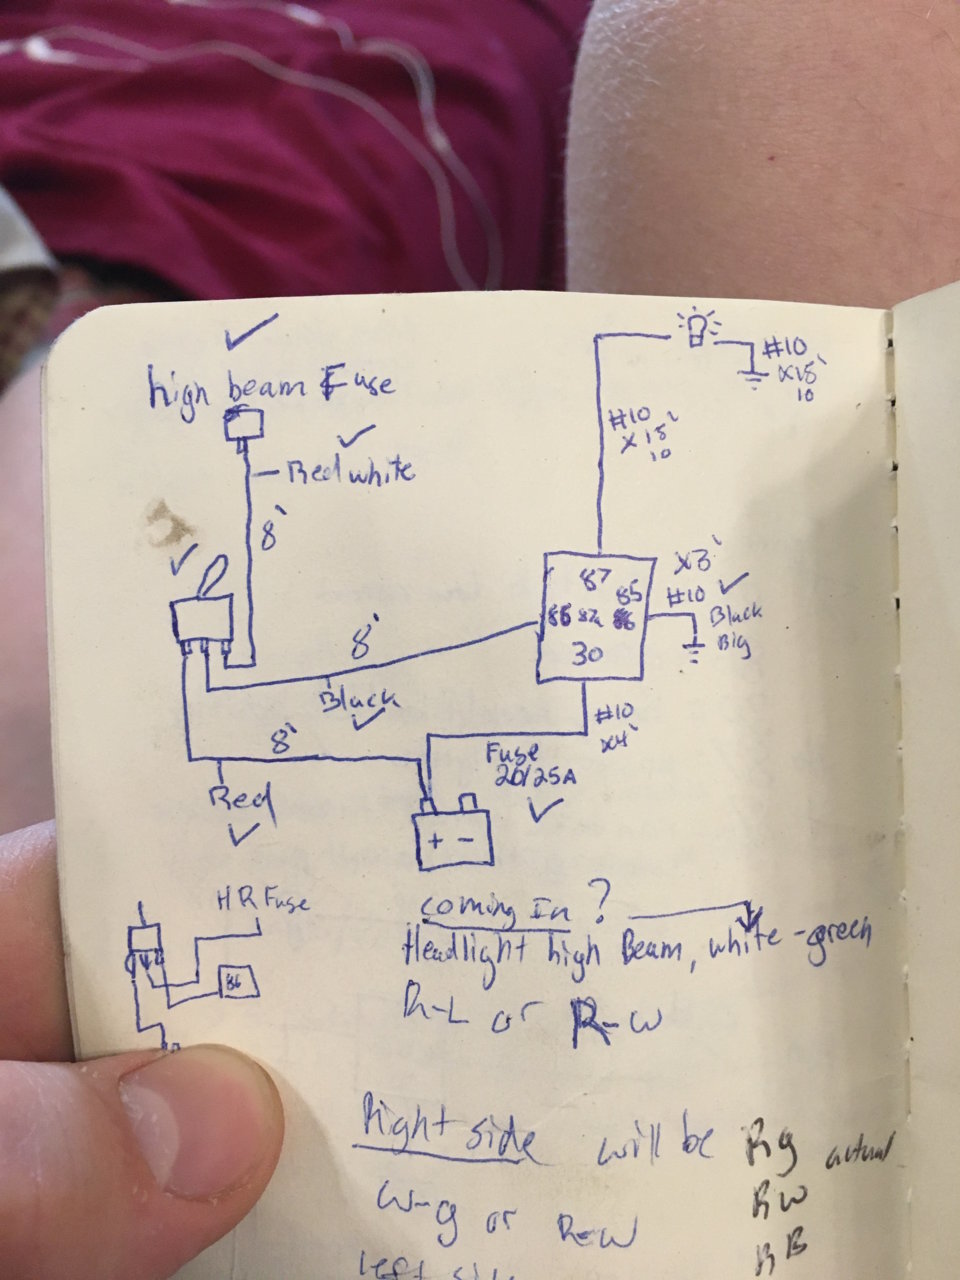 high beam Fuse
Red white
8'
8'
Black
8'
Red
#10
x15'
10
#10
x15'
10
87
85
86 87a
30
x3'
#10
Black
Big
#10
x4'
Fuse
20/25A
+ -
HR Fuse
86
coming In ?
Headlight high Beam, white-green
R-L or R-W
Right side will be Rg actual
W-g or R-W RW
left side RB